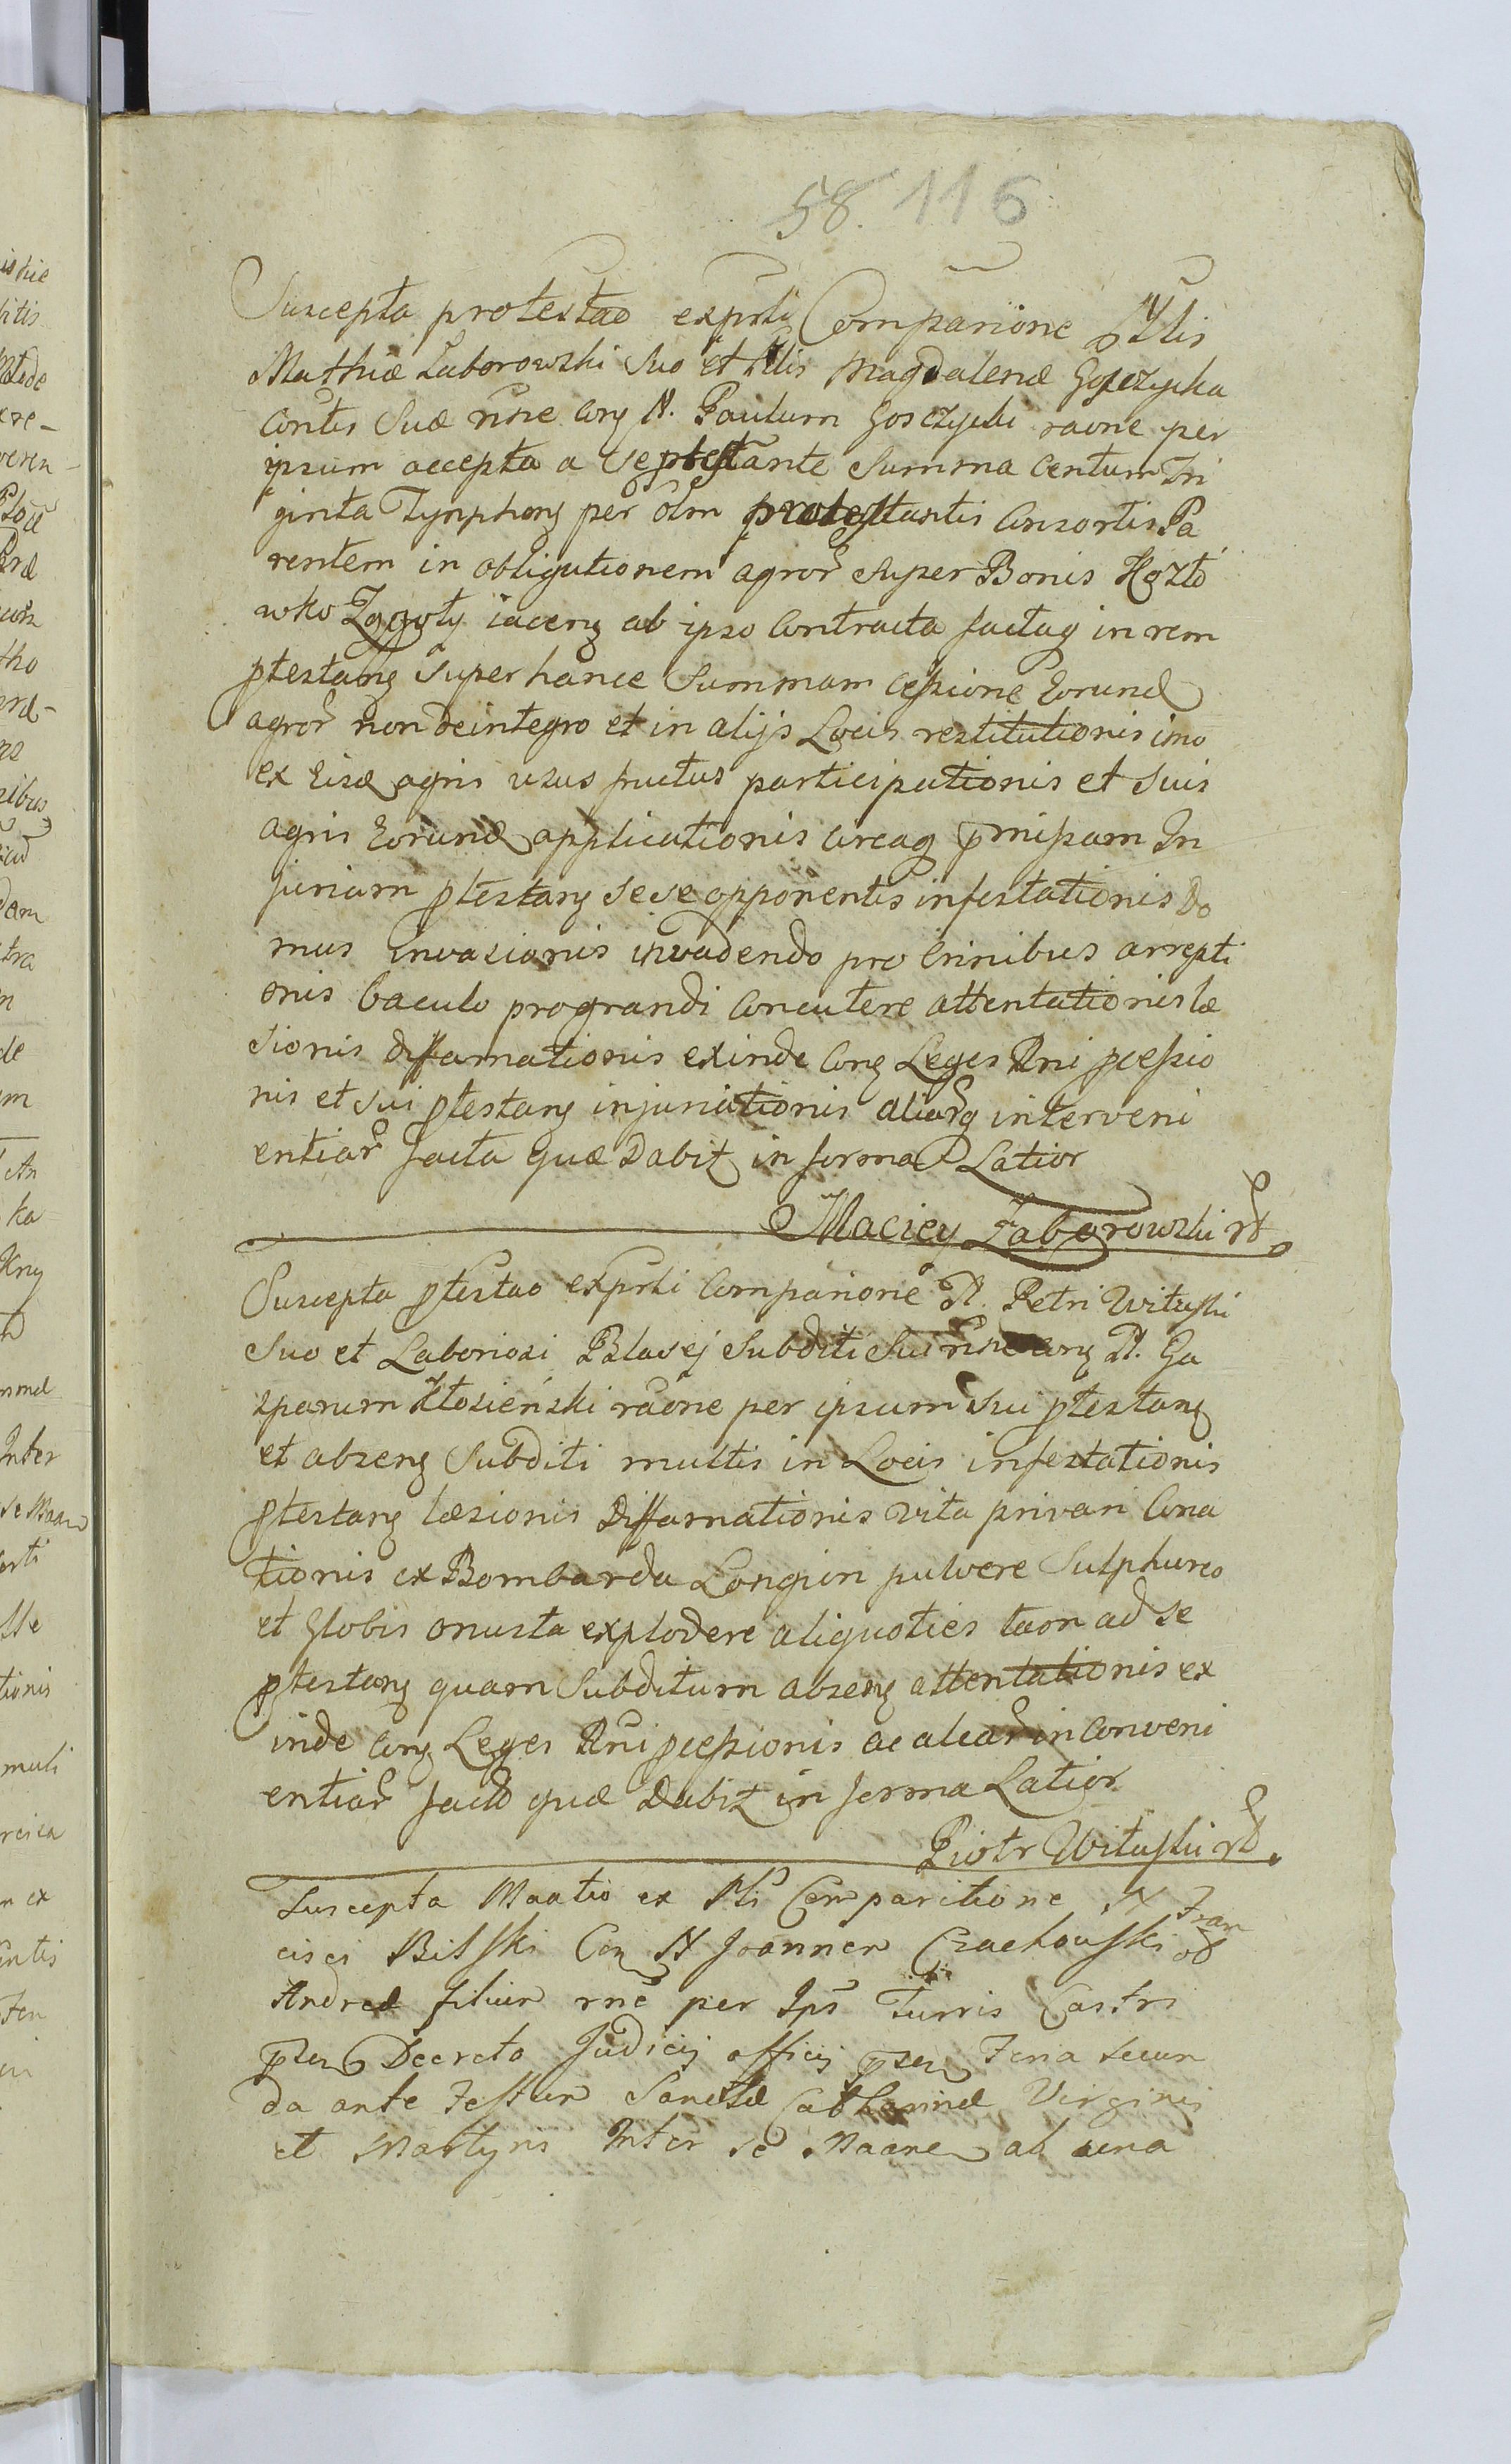 58. 116
Suscepta protestao exprti Comparione Nlis
Mathiæ Zaborowski suo et Nlis Magdalenæ Gosczycka
Contis suæ nne Cong N. Paulum Gosczycki raone per
ipsum accepta a se ptestante Summa Centum Tri
ginta Tynphong per olm protestantis Consortis Pa
rentem in obligationem agror super Bonis Kozło
wko Zgoły iaceng ab ipso Contracta factag in rem
ptestang super hance Summam cessione Eorund
agror non de integro et in alijs Locis restitutionis imo
ex Eisd agris usus fructus participationis et suis
agris Eorund applicationis circag pmissam In
juriam ptestang sese opponentis infestationis Do
mus invasionis invadendo pro Crinibus arrepti
onis baculo prograndi Concutere attentationis læ
sionis diffamationis exinde Cong Leges Rni pcessio
nis et sui ptestang injuriationis aliarg interveni
entiar facta quæ Dabit in forma Latior
Maciey Zaborowski
Suscepta ptestao exprti Comparione N. Petri Wituski
suo et Laboriosi Blasej Subditi sui nne Cong N. Ga
sparum Kłosieński raone per ipsum sui ptestang
et abseng Subditi multis in Locis infestationis
ptestang læsionis Diffamationis vita privari Cona
tionis ex Bombarda Longiori pulvere Sulphureo
et Globis onusta explodere aliquoties tam ad se
ptestang quam Subditum abseng attentationis ex
inde Cong Leges Rni pcessionis ac aliar inconveni
entiar facto quæ Dabit in forma Latior
Piotr Wituski
Suscepta Maatio ex Pti Comparitione N Fran
cisci Bilski Con N Joannem Czachowski
Andreæ filium rne per Ips Turris Castri
psen Decreto Judicij officij psen Feria secun
da ante Festum Sanctæ Catharinæ Virginis
et Martyris Inter se Maane ab una